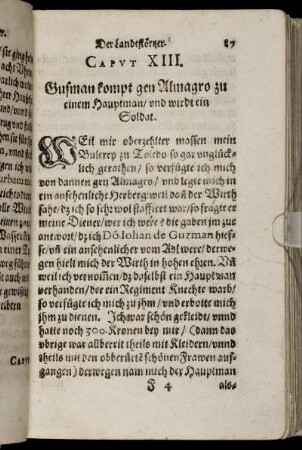 Der Landtstörtzer. 87
CAPVT XIII.
Gusman kompt gen Almagro zu
einem Hauptman/ vnd wirdt ein
Soldat.
WEil mir oberzehlter massen mein
Bulerey zu Toledo so gar vnglück-
lich gerathen/ so verfügte ich mich
von dannen gen Almagro/ vnd legte mich in
ein ansehenliche Herberg: weil dañ der Wirth
sahe/ dz ich so sehr wol staffiert war/ so fragte er
meine Diener/ wer ich were? die gaben jm zur
antwort/ dz ich Dõ Johan de Guzman hies-
se/ vñ ein ansehenlicher vom Adl were/ derwe-
gen hielt mich der Wirth in hohen ehren. Vñ
weil ich vernom̃en/ dz daselbst ein Hauptman
verhanden/ der ein Regiment Knecht warb/
so verfügte ich mich zu jhm/ vnd erbotte mich
jhm zu dienen. Ich war schön gekleidt/ vnnd
hatte noch 500. Kronen bey mir/ (dann das
vbrige war allbereit theils mit Kleidern/ vnnd
theils mit den obberürtē schönen Frawen auf-
gangen) derwegen nam mich der Hauptman
F 4 als-